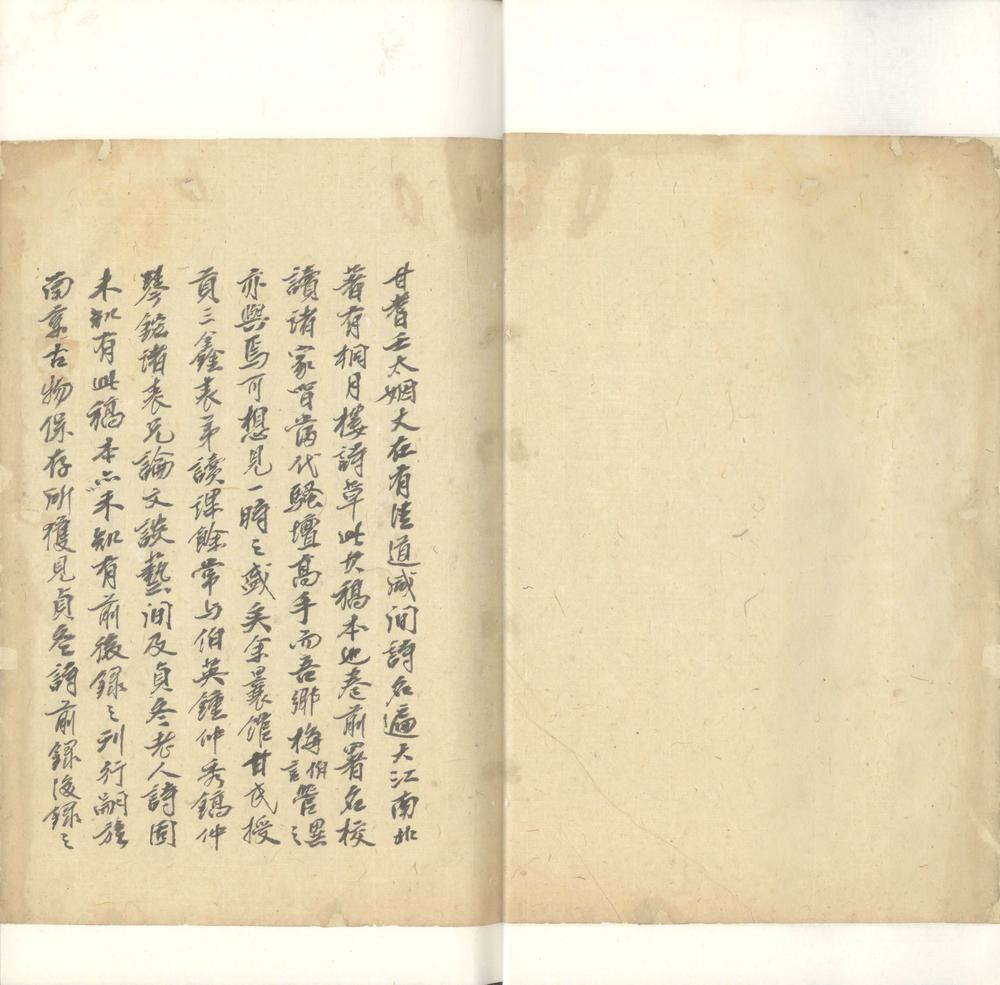 甘耆壬太姻丈在有清道咸间詩名遍大江南北
著有桐月樓詩草此其稿本也卷前署名校
讀诸家皆當代騷壇高手而吾鄉梅伯言管異之
亦與焉可想見一時之盛矣余曩館甘氏授
貢三鑫表弟讀课餘常与伯英鍾仲秀鐫仲
琴鋐诸表兄論文談藝间及貞冬老人詩固
未知有此稿本亦未知有前後録之刊行嗣旅
南京古物保存所獲見貞冬詩前録後録之